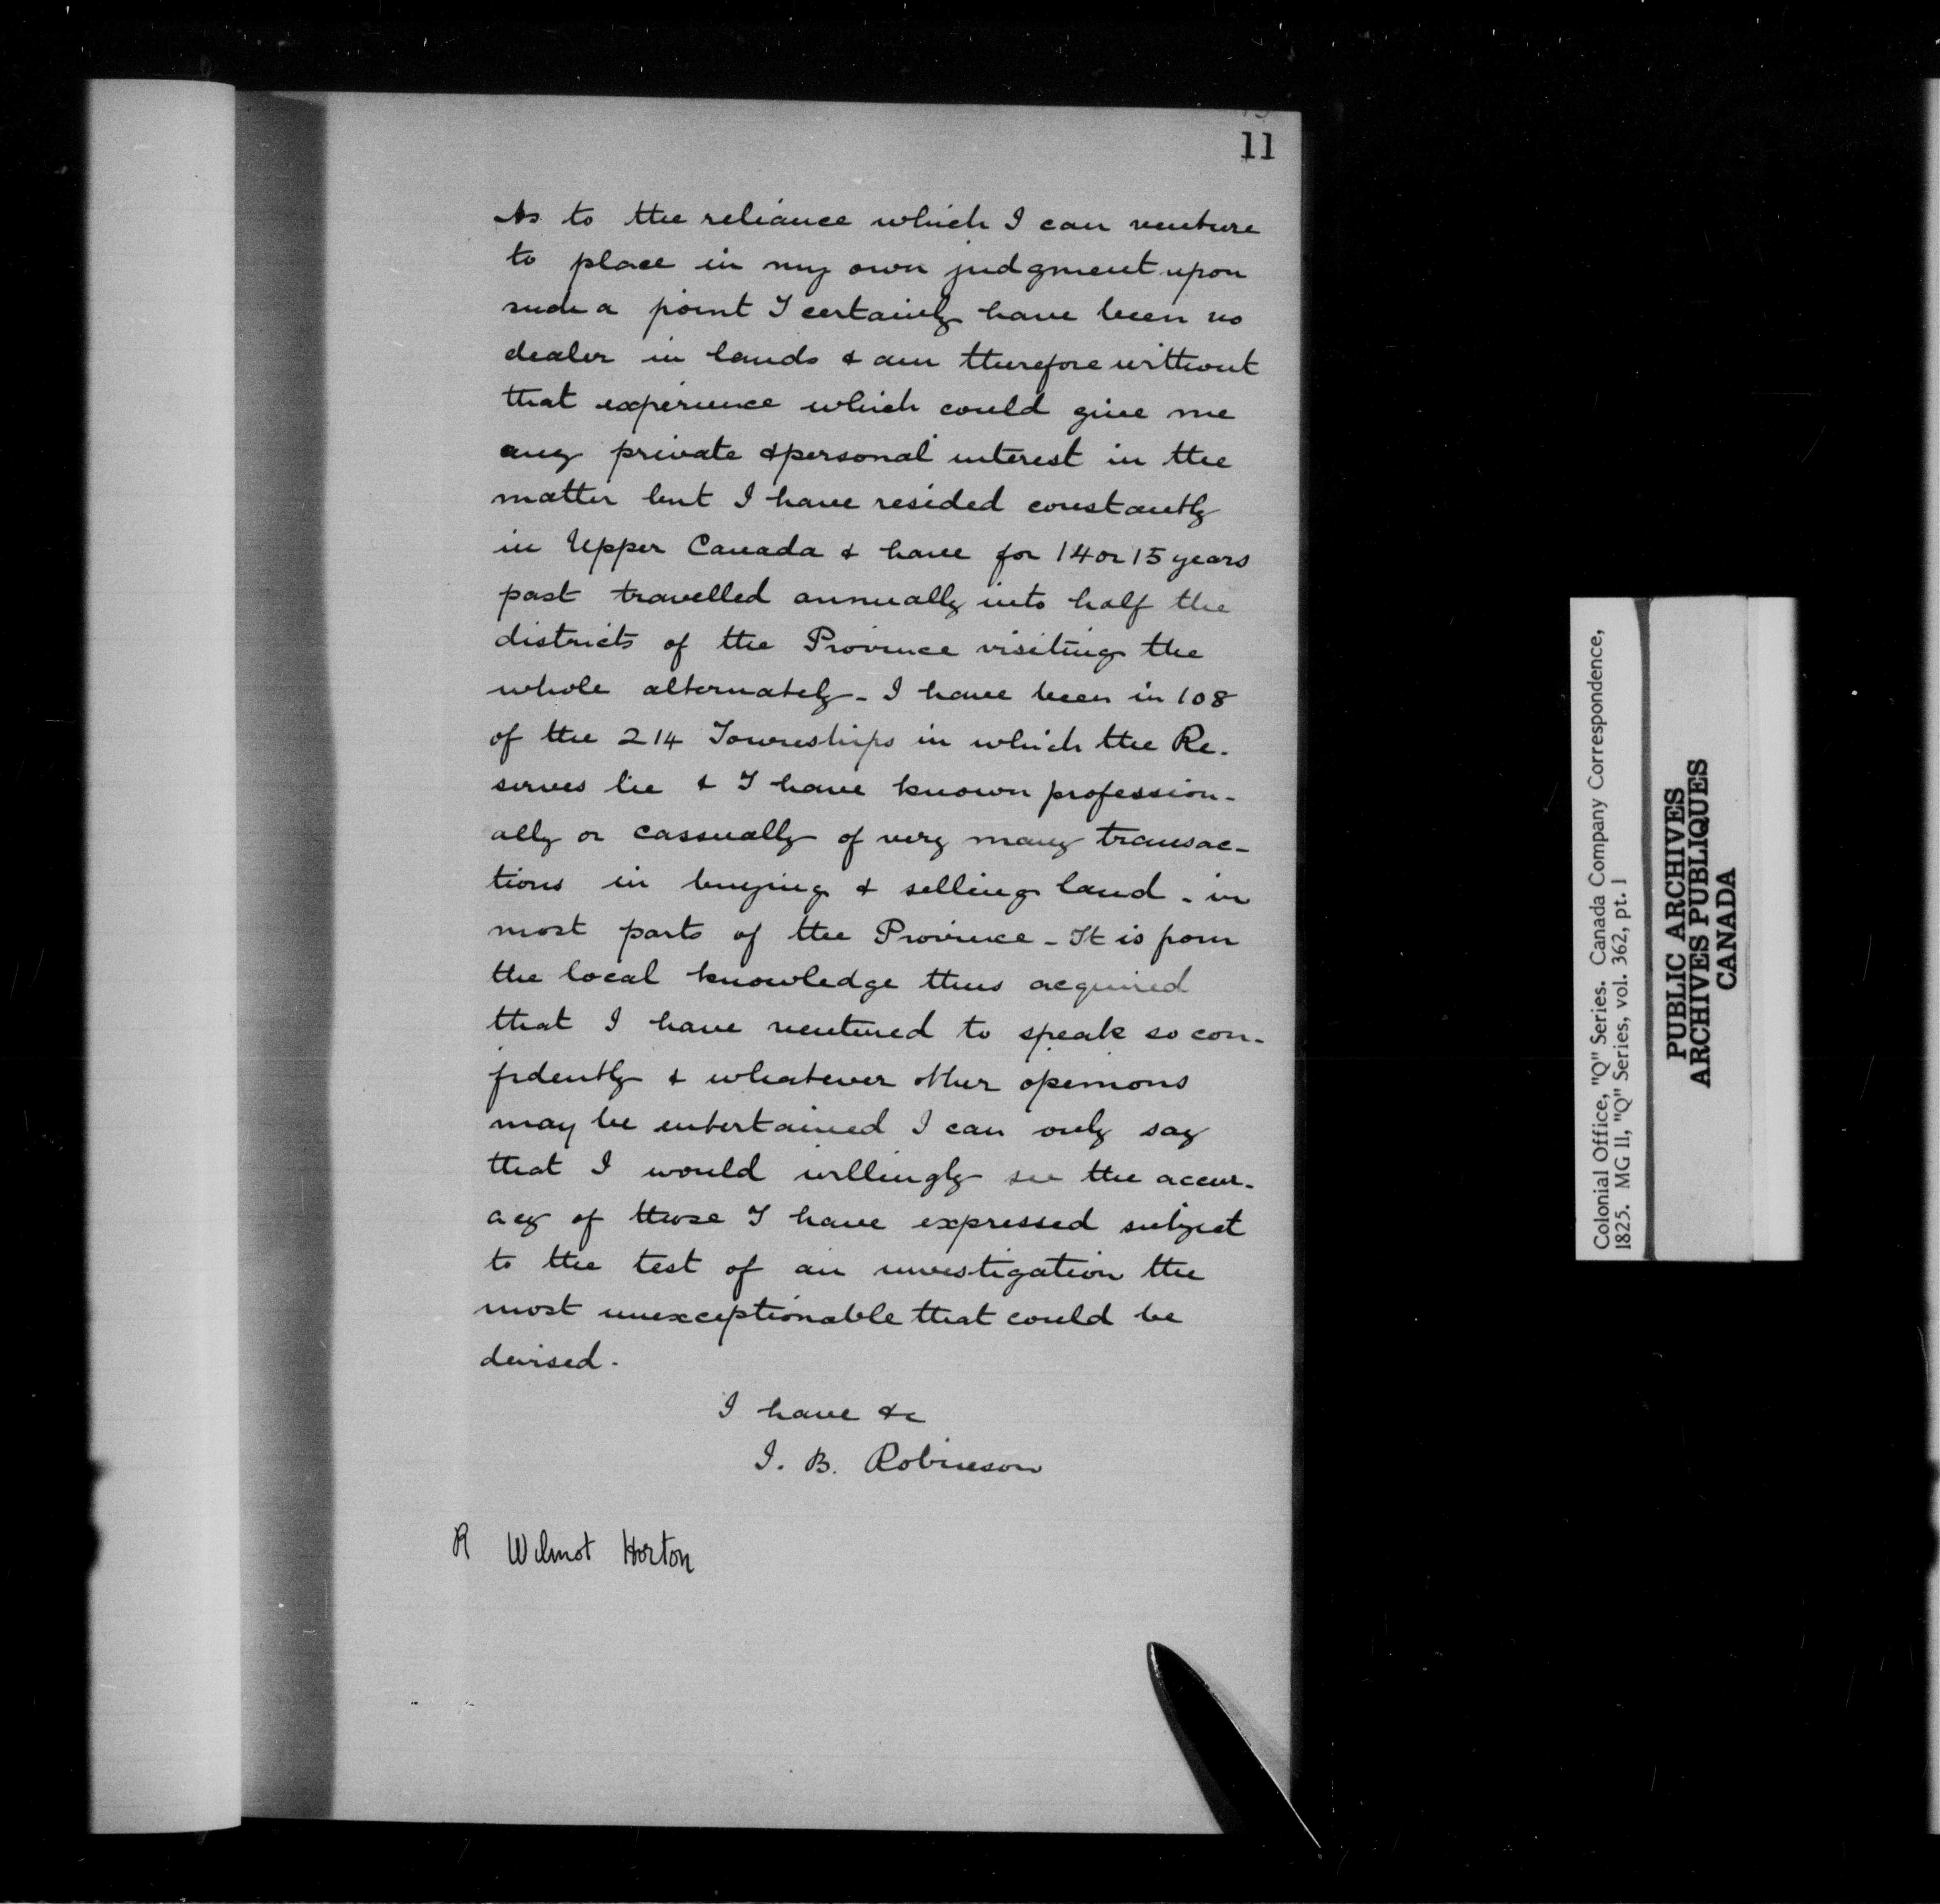 11
As to the reliance which I can venture
to place in my own judgment upon
such a point I certainly have been no
dealer in lands & am therefore without
that experience which could give me
any private & personal interest in the
matter but I have resided constantly
in Upper Canada & have for 14 or 15 years
past travelled annually into half the
districts of the Province visiting the
whole alternately - I have been in 108
of the 214 Townships in which the Re-
serves lie & I have known profession-
ally or cassually of very many transac-
tions in buying & selling land - in
most parts of the Province - It is from
the local knowledge thus acquired
that I have ventured to speak so con-
fidently & whatever other openions
may be entertained I can only say
that I would willingly see the accur-
acy of those I have expressed subject
to the test of an investigation the
most unexceptionable that could be
devised.
I have &c
J. B. Robinson
R Wilmot Horton
Colonial Office, "Q" Series. Canada Company Correspondence,
1825. MG 11, "Q" Series, vol. 362, pt. 1
PUBLIC ARCHIVES
ARCHIVES PUBLIQUES
CANADA